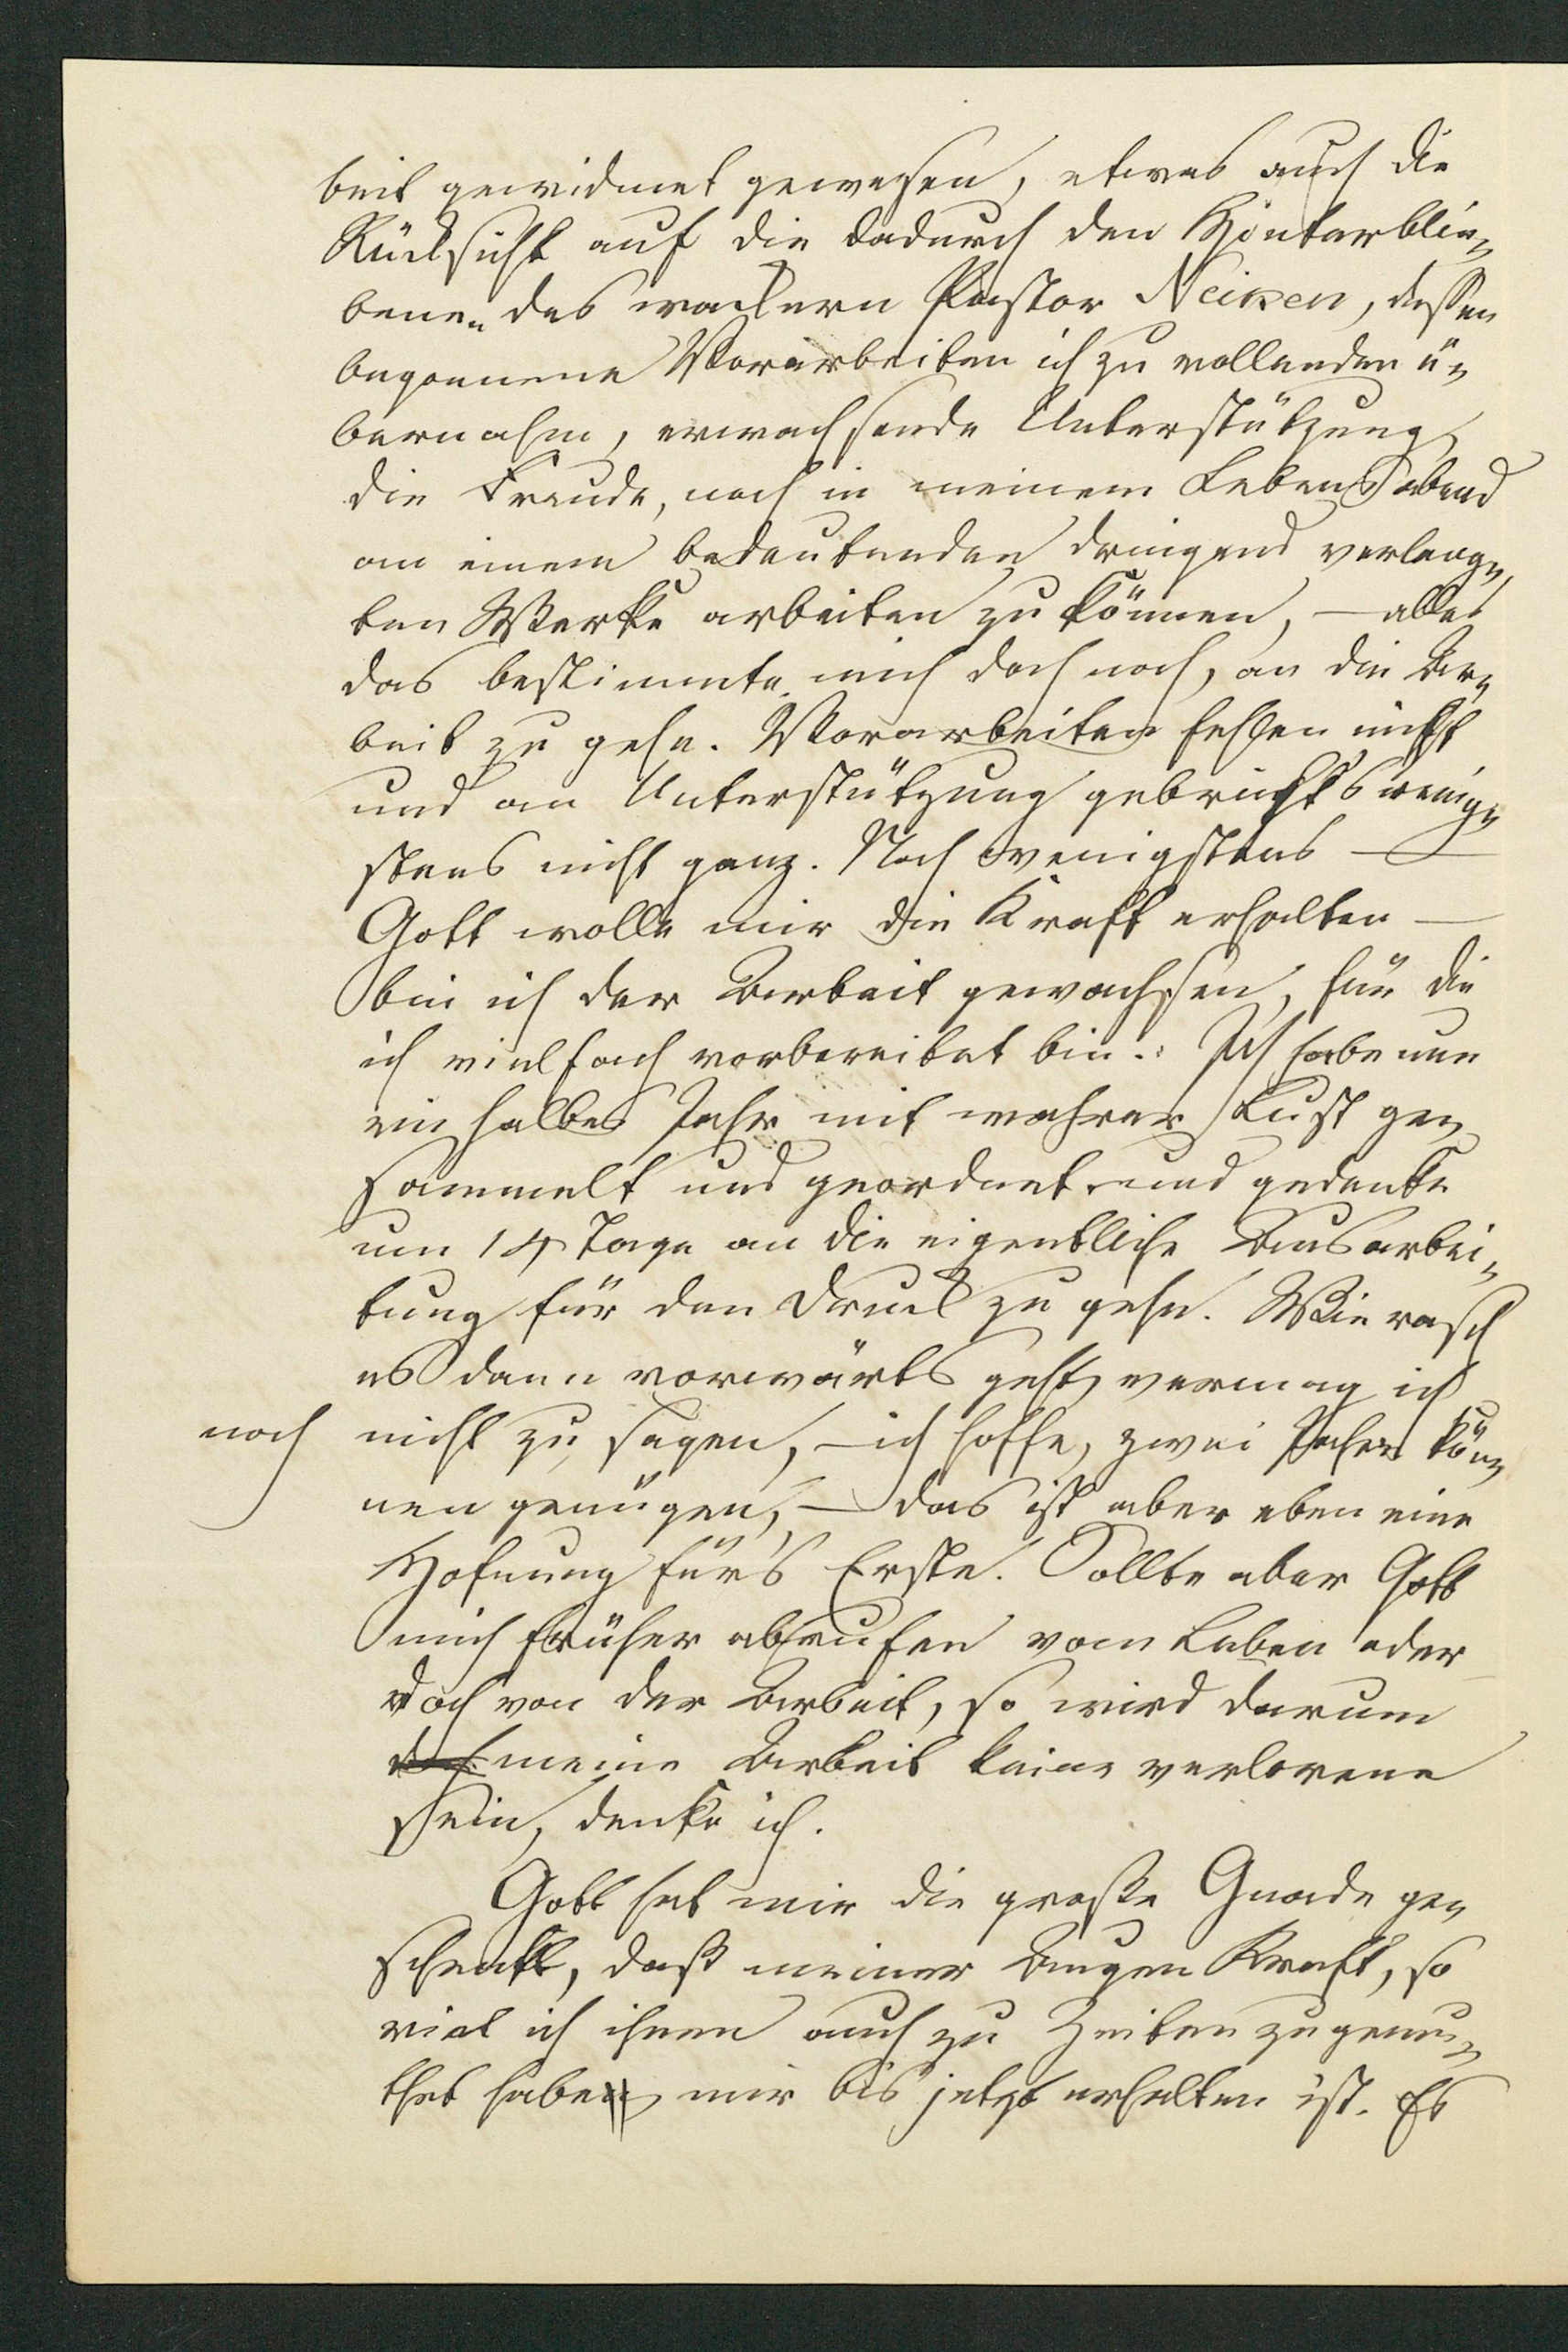 beit gewidmet gewesen, etwas auch die
Rücksicht auf die dadurch den Hinterblie-
benen des wackern Pastor Neiken, dessen
begonnene Vorarbeiten ich zu vollenden ü-
bernahm, erwachsende Unterstützung,
die Freude, noch in meinem Lebensabend
an einem bedeutenden dringend verlang-
ten Werke arbeiten zu können, — alles
das bestimmte mich doch noch, an die Ar-
beit zu gehn. Vorarbeiten fehlen nicht
und an Unterstützung gebricht's wenig-
stens nicht ganz. Noch wenigstens —
Gott wolle mir die Kraft erhalten —
bin ich der Arbeit gewachsen, für die
ich vielfach vorbereitet bin. Ich habe nun
ein halbes Jahr mit wahrer Lust ge-
sammelt und geordnet und gedenke
um 14 Tage an die eigentliche Ausarbei-
tung für den Druck zu gehn. Wie rasch
es dann vorwärts geht, vermag ich
noch nicht zu sagen, — ich hoffe, zwei Jahre kön-
nen genügen, — das ist aber eben eine
Hofnung für's Erste. Sollte aber Gott
mich früher abrufen vom Leben oder
doch von der Arbeit, so wird darum
meine Arbeit keine verlorene
sein, denke ich.
Gott hat mir die große Gnade ge-
schenkt, daß meiner Augen Kraft, so
viel ich ihnen auch zu Zeiten zugemu-
thet habe, mir bis jetzt erhalten ist. Es